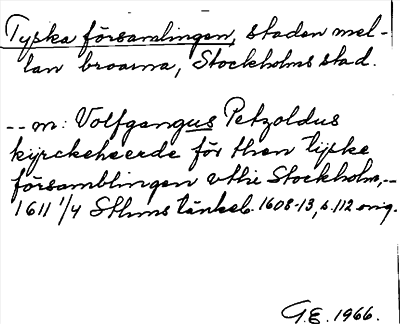 Tyska församlingen, staden mel-
lan broarna, Stockholms stad.
-- m: Volfgangus Petzoldus
kijrckeheerde för then tijske
församblingen vthi Stockholm,--
1611 1/4 Sthms tänkeb. 1608-13, s. 112 orig.
G.E. 1966.